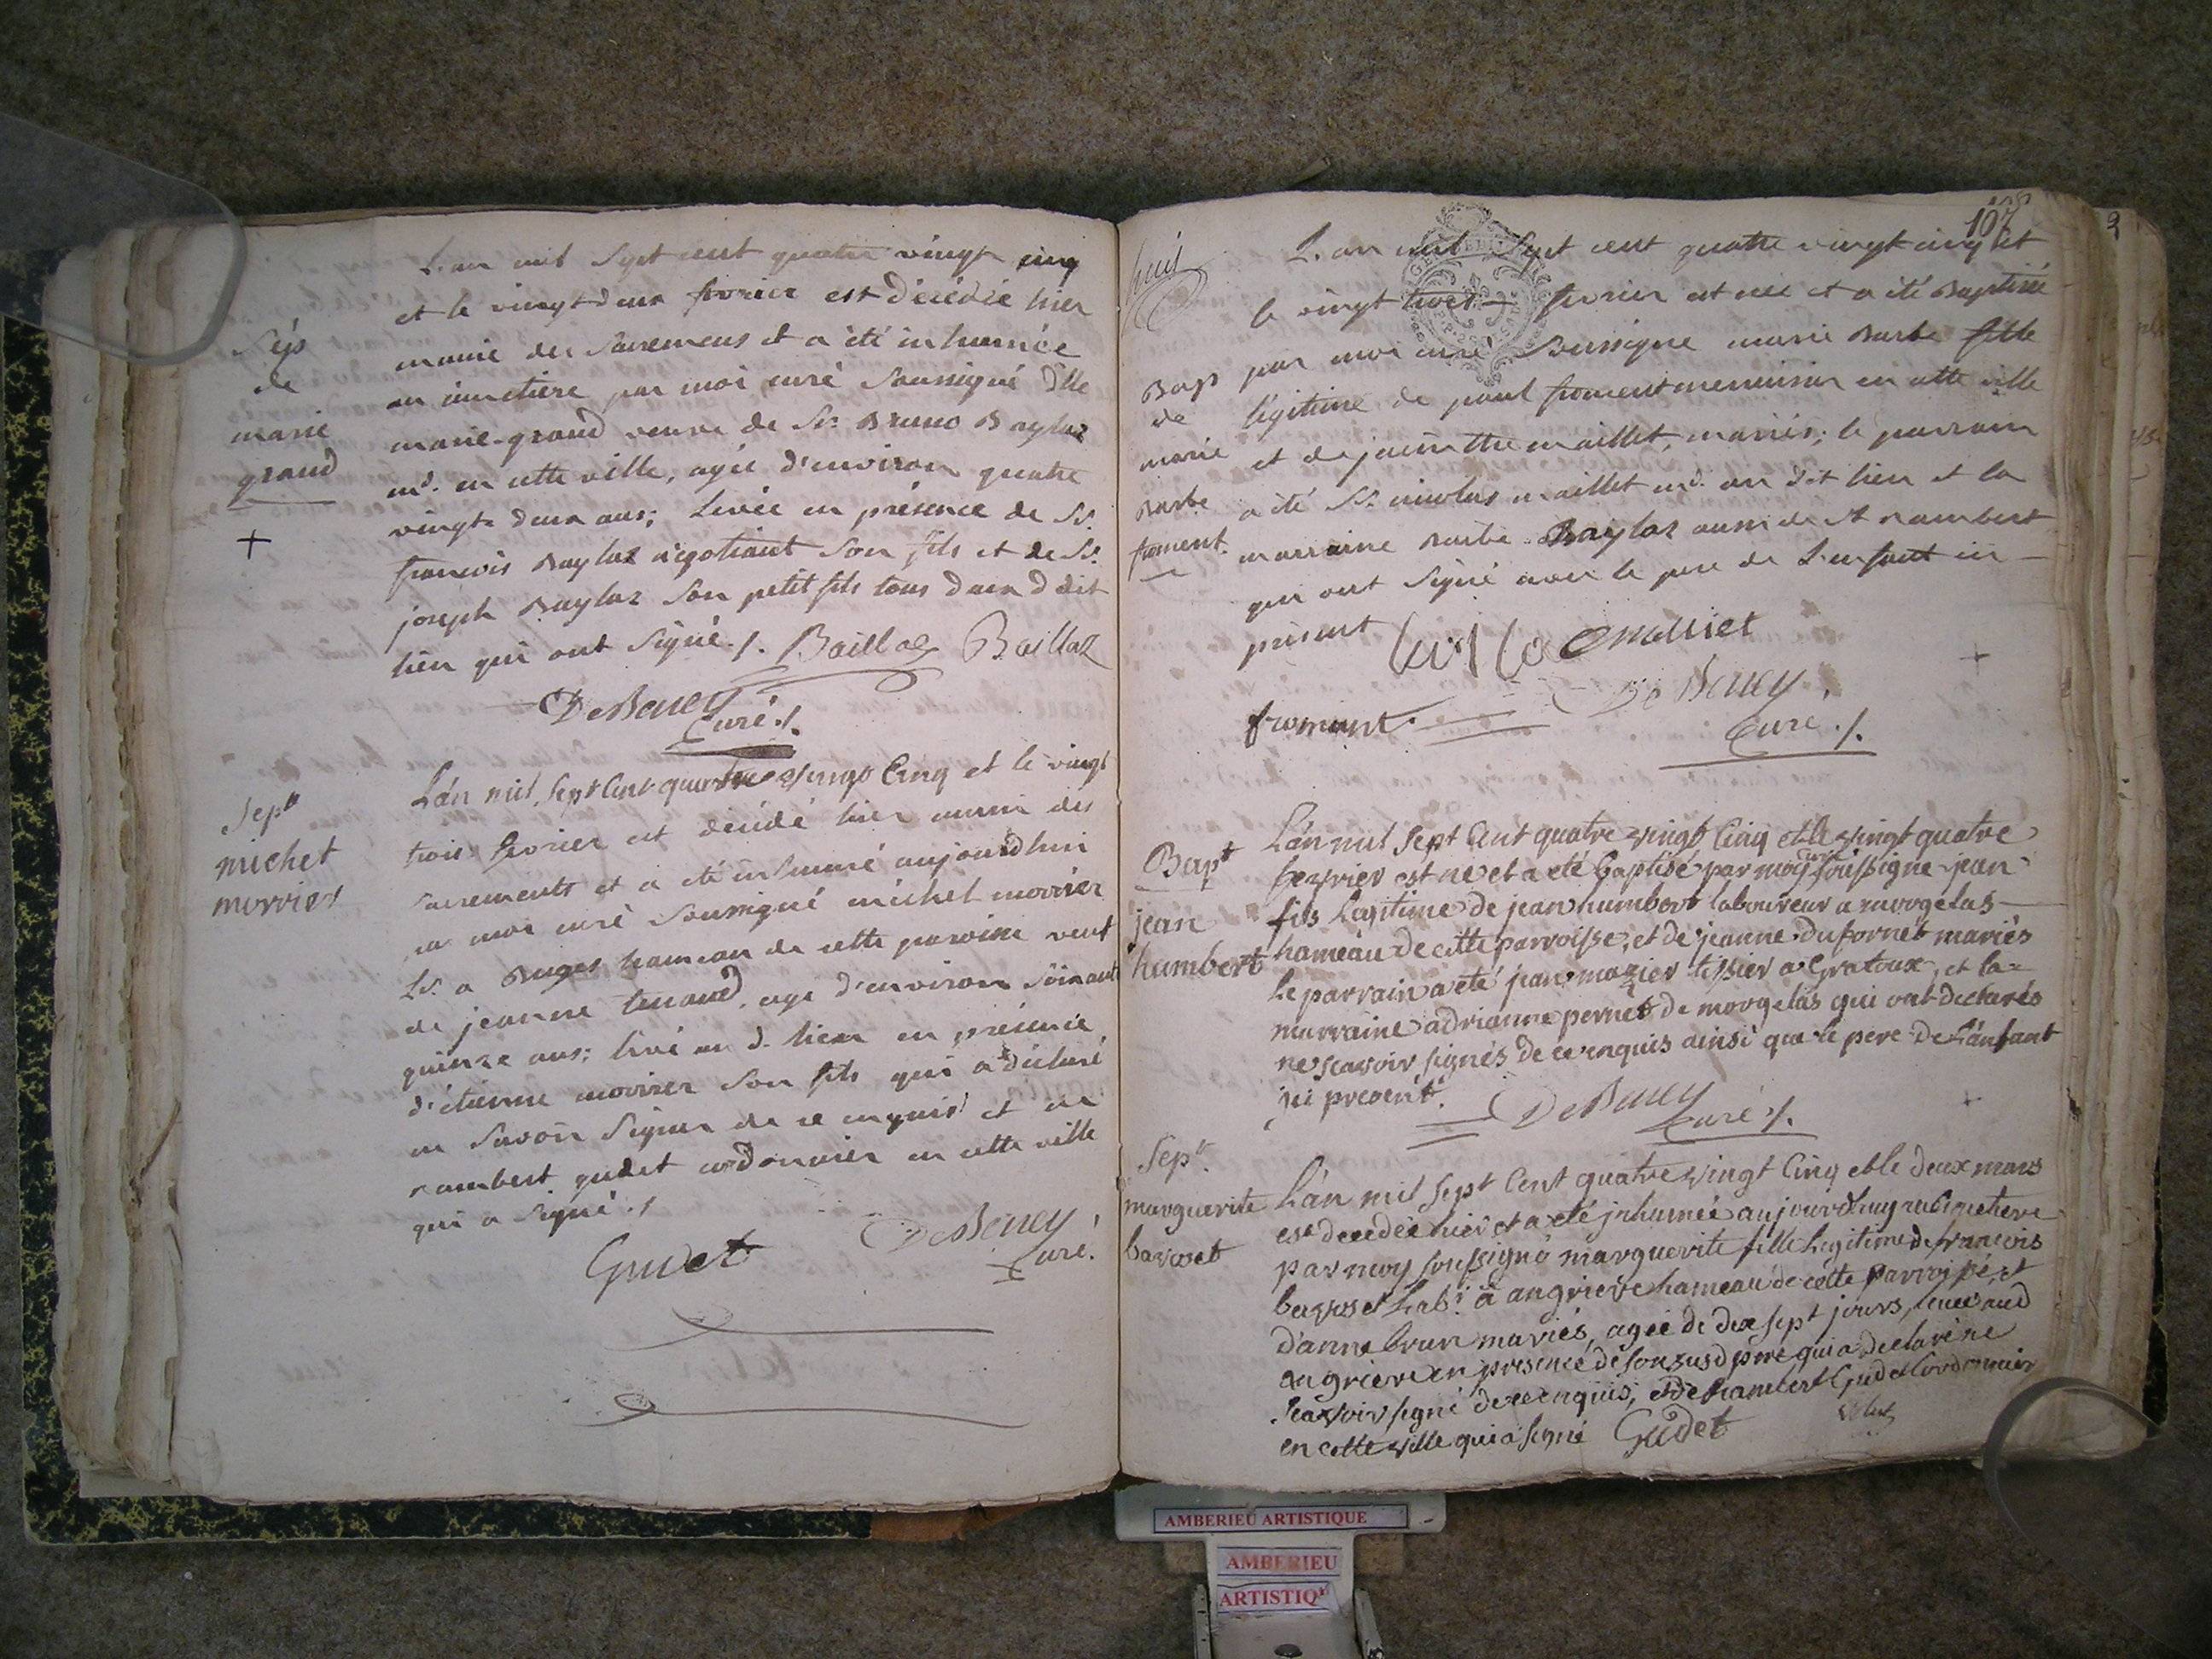 Sép
de
marie
grand
L'an mil Sept cent quatre vingt cinq
et le vingt deux fevrier est décédée hier
munie des Sacremens et a été inhumée
au cimetiere par moi curé Soussigné Dlle
marie grand veuve de Sr. Bruno Baylaz
md. en cette ville, agée d'environ quatre
vingts deux ans; Levée en présence de Sr.
francois Baylaz négotiant Son fils et de Sr.
joseph Baylaz Son petit fils tous deux d dit
lieu qui ont Signé ./. Baillaz Baillaz
DeBeney
Curé ./.
Sepre
michel
morrier
L'an mil Sept Cent quatre vingt Cinq et le vingt
trois fevrier est décédé hier muni des
sacrements et a été inhumé aujourdhui
par moi curé Soussigné michel morrier
Lr. a Buges hameau de cette paroisse veuf
de jeanne tenand, agé d'environ Soixante
quinze ans; levé au d. lieu en présence
d'étienne morrier Son fils qui a déclaré
ne Savoir Signer de ce enquis et de
rambert gudet cordonnier en cette ville
qui a Signé ./
Gudet DeBeney
Curé.
107
huit
Bap
de
marie
Barbe
froment.
L'an mil Sept cent quatre vingt cinq et
le vingt trois fevrier est née et a été Baptisée
par moi curé Soussigné marie Barbe fille
légitime de paul froment menuisier en cette ville
et de jacinthe maillet, mariés; le parrain
a été Sr. nicolas maillet md. au dit lieu et la
marraine Barbe Baylaz aussi de St rambert
qui ont Signé avec le pere de L'enfant ici
présent
froment DeBeney
Curé ./.
Bapt
jean
humbert
L'an mil Sept Cent quatre vingt Cinq et le vingt quatre
fevrier est né et a été baptisé par moy curé soussigné jean
fils Legitime de jean humbert laboureur a morgelas
hameau de cette parroisse, et de jeanne dufornet mariés
le parrain a été jean mazier tissier a Gratoux, et la
marraine adrianne pernet de morgelas qui ont declarés
ne scavoir signés de ce enquis ainsi que le pere de L'enfant
ici present. DeBeney
Curé ./.
Sepre.
marguerite
bavoset
L'an mil Sept Cent quatre vingt Cinq et le deux mars
est decedée hier et a été jnhumée aujourd'huy au Cimetiere
par moy soussigné marguerite fille Legitime de françois
bavoset Labr. à angriere hameau de cette parroisse, et
d'anne brun mariés, agée de dix sept jours, levée aud
angriere en presence de son susd pere qui a declaré ne
scavoir signé de ce enquis, et de Rambert Gudet Cordonnier
en cette ville qui a signé Gudet
AMBERIEU ARTISTIQUE
AMBERIEU
ARTISTIQ